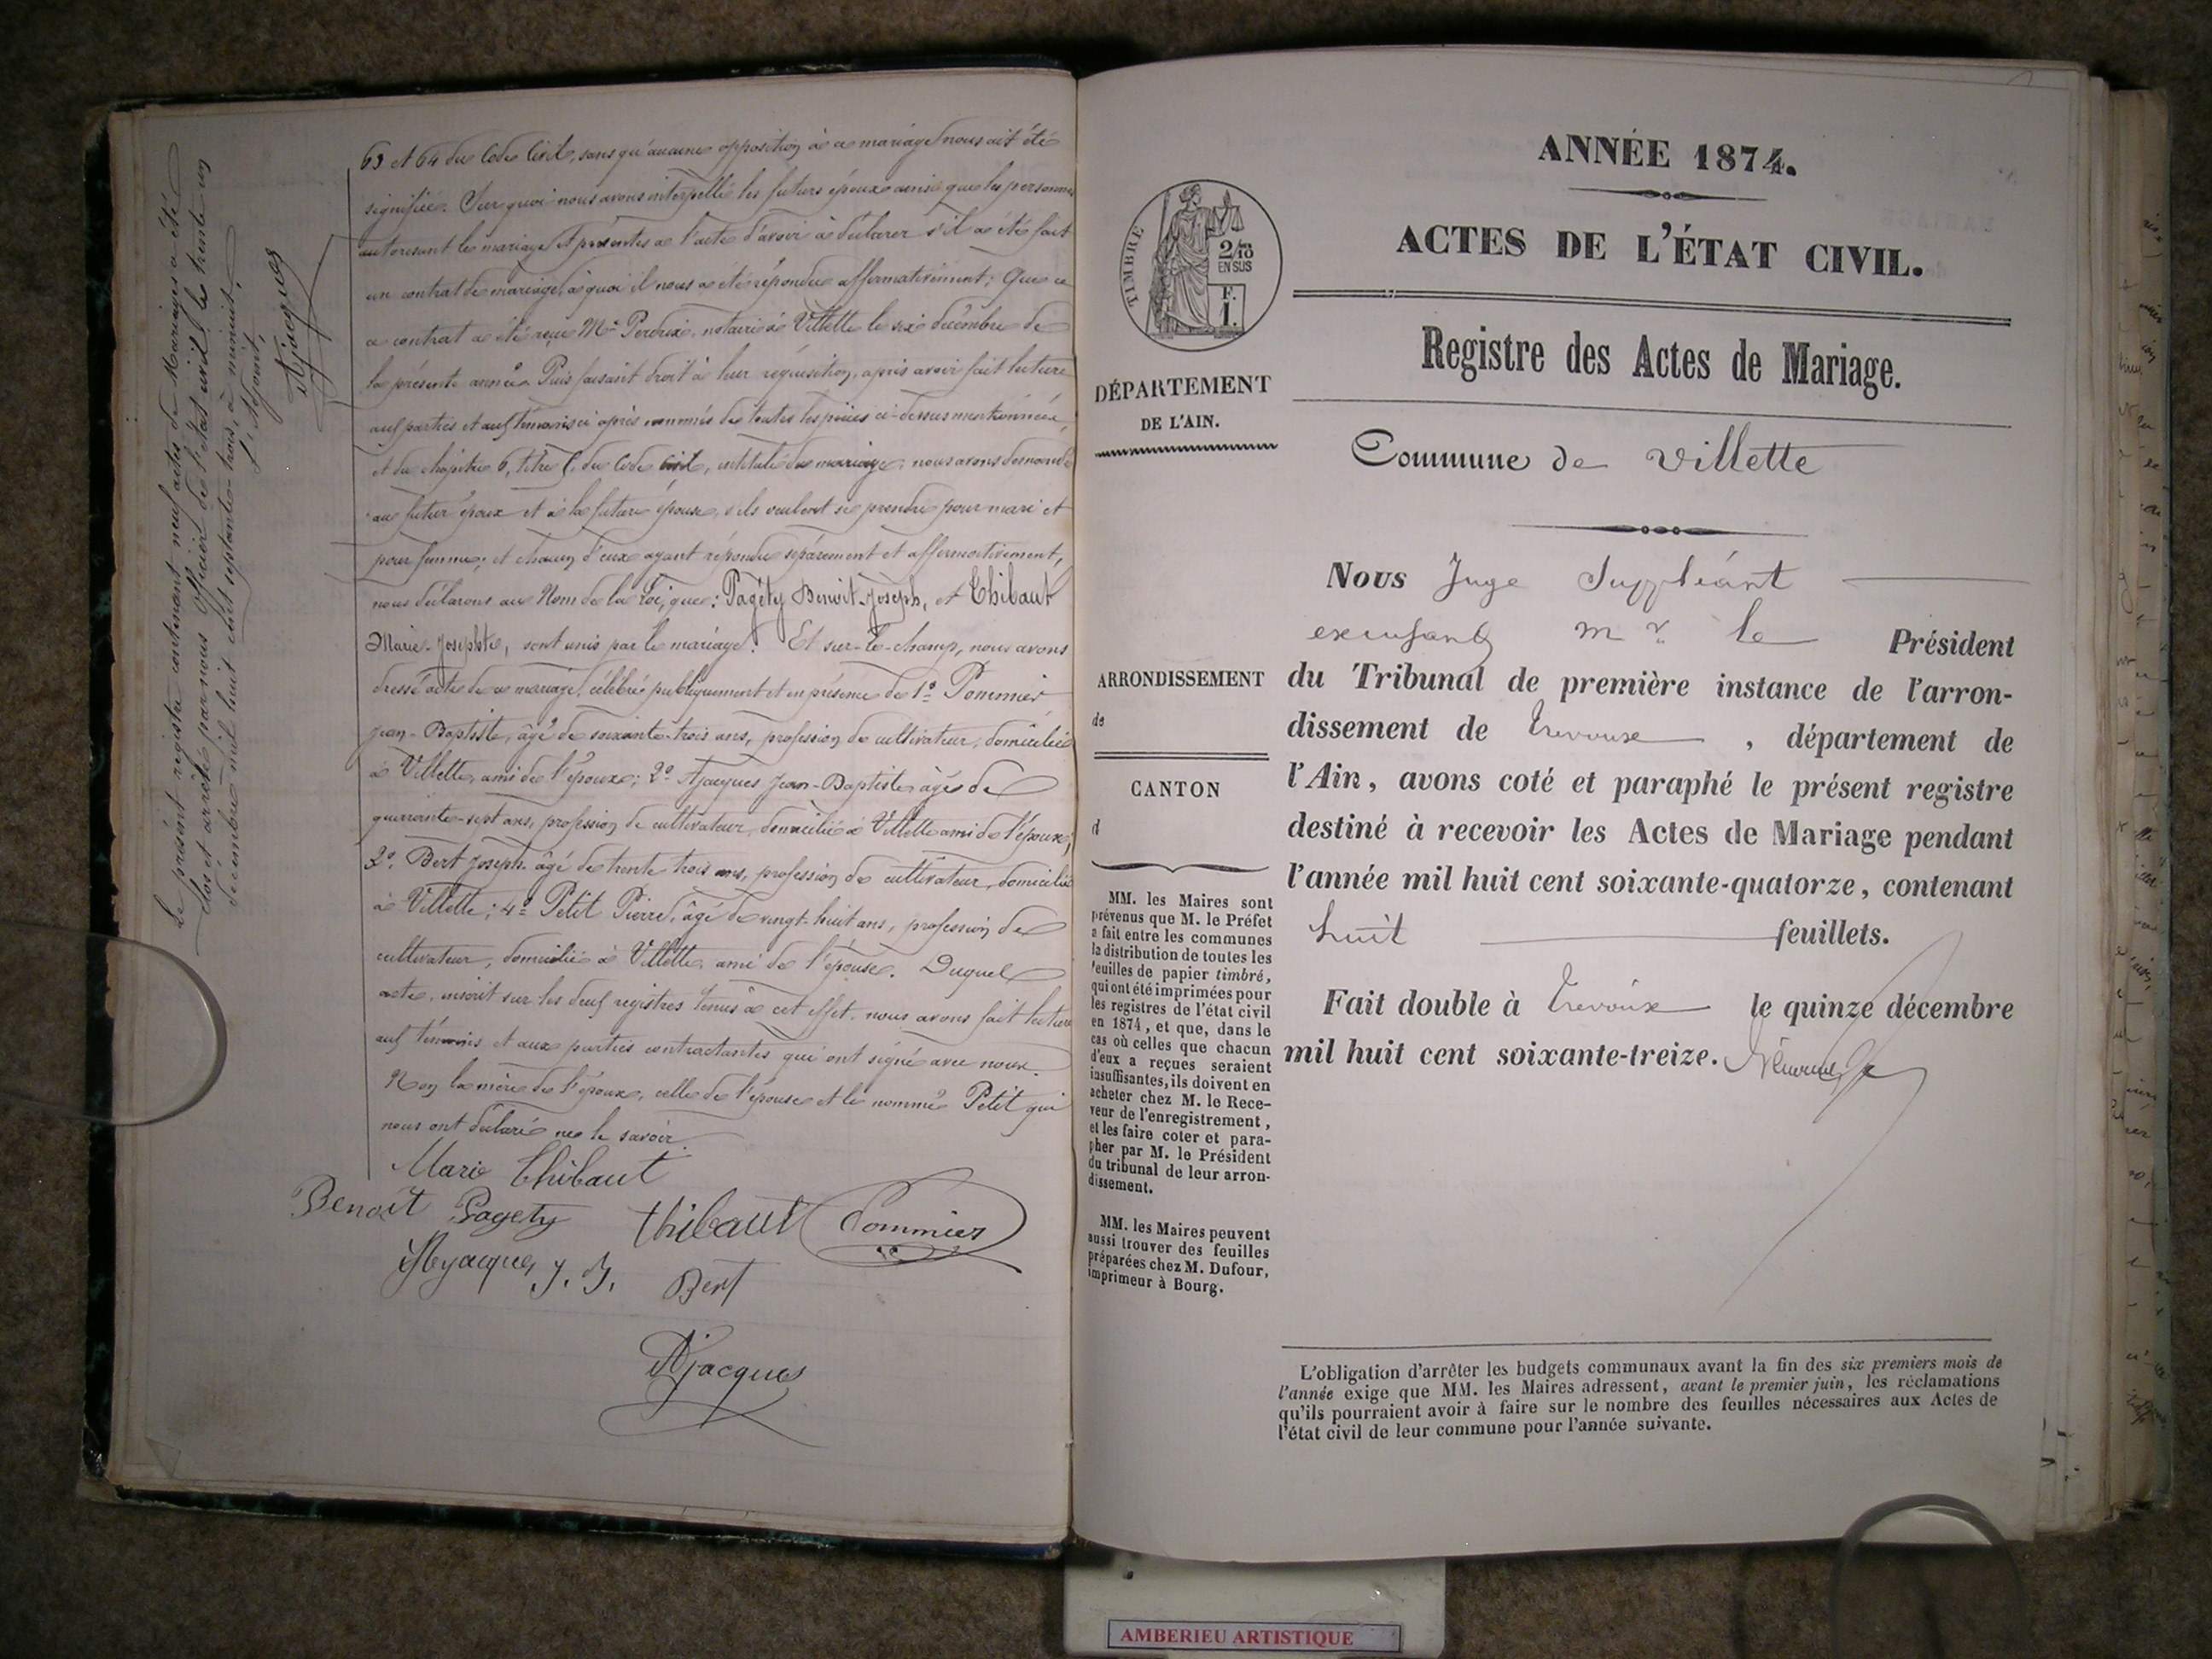 63 et 64 du Code Civil, sans qu'aucune opposition à ce mariage nous ait été
signifiée. Sur quoi nous avons interpellé les futurs époux ainsi que les personnes
autorisant le mariage et présentes à l'acte d'avoir à déclarer s'il a été fait
un contrat de mariage, à quoi il nous a été répondu affirmativement; Que ce
ce contrat a été reçu Me Perdrix, notaire à Villette le six décembre de
la présente année. Puis faisant droit à leur réquisition, après avoir fait lecture
aux parties et aux témoins ci après nommés de toutes les pièces ci-dessus mentionnées,
et du chapitre 6, titre 5, du Code Civil, intitulé du mariage, nous avons demandé
au futur époux et à la future épouse, s'ils veulent se prendre pour mari et
pour femme; et chacun d'eux ayant répondu séparement et affirmativement,
nous déclarons au Nom de la Loi, que: Pagéty Benoit-Joseph, et Thibaut
Marie-Josephte, sont unis par le mariage. Et sur-le-champ, nous avons
dressé acte de ce mariage, célébré publiquement et en présence de 1º Pommier
Jean-Baptiste, âgé de soixante-trois ans, profession de cultivateur, domicilié
à Villette, ami de l'époux; 2º Ajacques Jean-Baptiste âgé de
quarante-sept ans, profession de cultivateur, domicilié à Villette ami de l'époux;
3º Bert Joseph âgé de trente trois ans, profession de cultivateur, domicilié
à Villette; 4º Petit Pierre, âgé de vingt-huit ans, profession de
cultivateur, domicilié à Villette, ami de l'épouse. Duquel
acte, inscrit sur les deux registres tenus à cet effet, nous avons fait lecture
aux témoins et aux parties contractantes qui ont signé avec nous.
Non la mère de l'époux, celle de l'épouse et le nommé Petit qui
nous ont déclaré ne le savoir.
Marie Thibaut
Benoit Pagéty thibaut Pommier
Ajacques J. B. Bert
Ajacques
Le présent registre contenant neuf actes de Mariages a été
clos et arrêté par nous Officier de l'état civil le trente un
décembre mil huit cent septante-trois, à minuit.
L'Adjoint,
Ajacques
ANNÉE 1874.
ACTES DE L'ÉTAT CIVIL.
TIMBRE
2/10
EN SUS
F.
1.
Registre des Actes de Mariage.
DÉPARTEMENT
DE L'AIN.
Commune de Villette
Nous Juge Suppléant
Mr le Président
du Tribunal de première instance de l'arron-
dissement de Trevoux, département de
l'Ain, avons coté et paraphé le présent registre
destiné à recevoir les Actes de Mariage pendant
l'année mil huit cent soixante-quatorze, contenant
huit feuillets.
Fait double à Trevoux le quinze décembre
mil huit cent soixante-treize.
ARRONDISSEMENT
de
CANTON
d
MM. les Maires sont
prévenus que M. le Préfet
a fait entre les communes
la distribution de toutes les
feuilles de papier timbré,
qui ont été imprimées pour
les registres de l'état civil
en 1874, et que, dans le
cas où celles que chacun
d'eux a reçues seraient
insuffisantes, ils doivent en
acheter chez M. le Rece-
veur de l'enregistrement,
et les faire coter et para-
pher par M. le Président
du tribunal de leur arron-
dissement.
MM. les Maires peuvent
aussi trouver des feuilles
préparées chez M. Dufour,
imprimeur à Bourg.
L'obligation d'arrêter les budgets communaux avant la fin des six premiers mois de
l'année exige que MM. les Maires adressent, avant le premier juin, les réclamations
qu'ils pourraient avoir à faire sur le nombre des feuilles nécessaires aux Actes de
l'état civil de leur commune pour l'année suivante.
AMBERIEU ARTISTIQUE